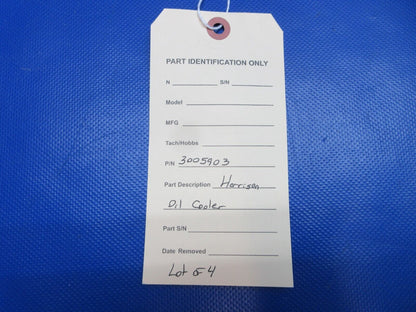 PART IDENTIFICATION ONLY
N S/N
Model
MFG
Tach/Hobbs
P/N 3005903
Part Description Harrison
Oil Cooler
Part S/N
Date Removed
Lot of 4